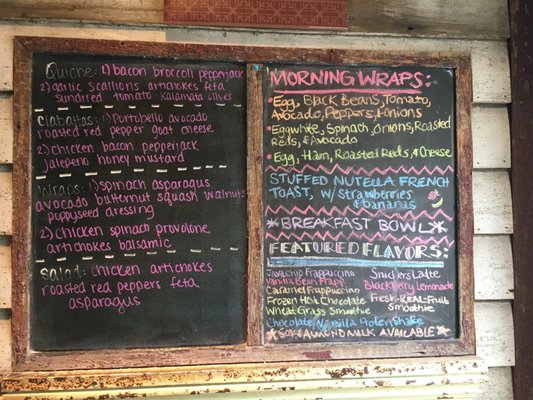 Quiche: 1) bacon broccoli pepperjack
2) garlic scallions artichokes feta
sundried tomato kalamata olives
Ciabattas: 1) Portobello avocado
roasted red pepper goat cheese
2) chicken bacon pepperjack
jalepeno honey mustard
Wraps: 1) spinach asparagus
avocado butternut squash walnuts
poppyseed dressing
2) chicken spinach provolone
artichokes balsamic
Salad: chicken artichokes
roasted red peppers feta
asparagus
MORNING WRAPS:
Egg, Black Beans, Tomato,
Avocado, Peppers, & Onions
Eggwhite, Spinach, Onions, Roasted
Reds, & Avocado
Egg, Ham, Roasted Reds, & Cheese
STUFFED NUTELLA FRENCH
TOAST, w/ Strawberries
& bananas
*BREAKFAST BOWL*
FEATURED FLAVORS:
Java chip Frappuccino
Vanilla Bean Frapp
Caramel Frappuccino
Frozen Hot Chocolate
Wheat Grass Smoothie
Chocolate/Vanilla Protein Shake
Snickers Latte
Blackberry Lemonade
Fresh-REAL-Fruit
Smoothie
*SOY/ALMOND MILK AVAILABLE*